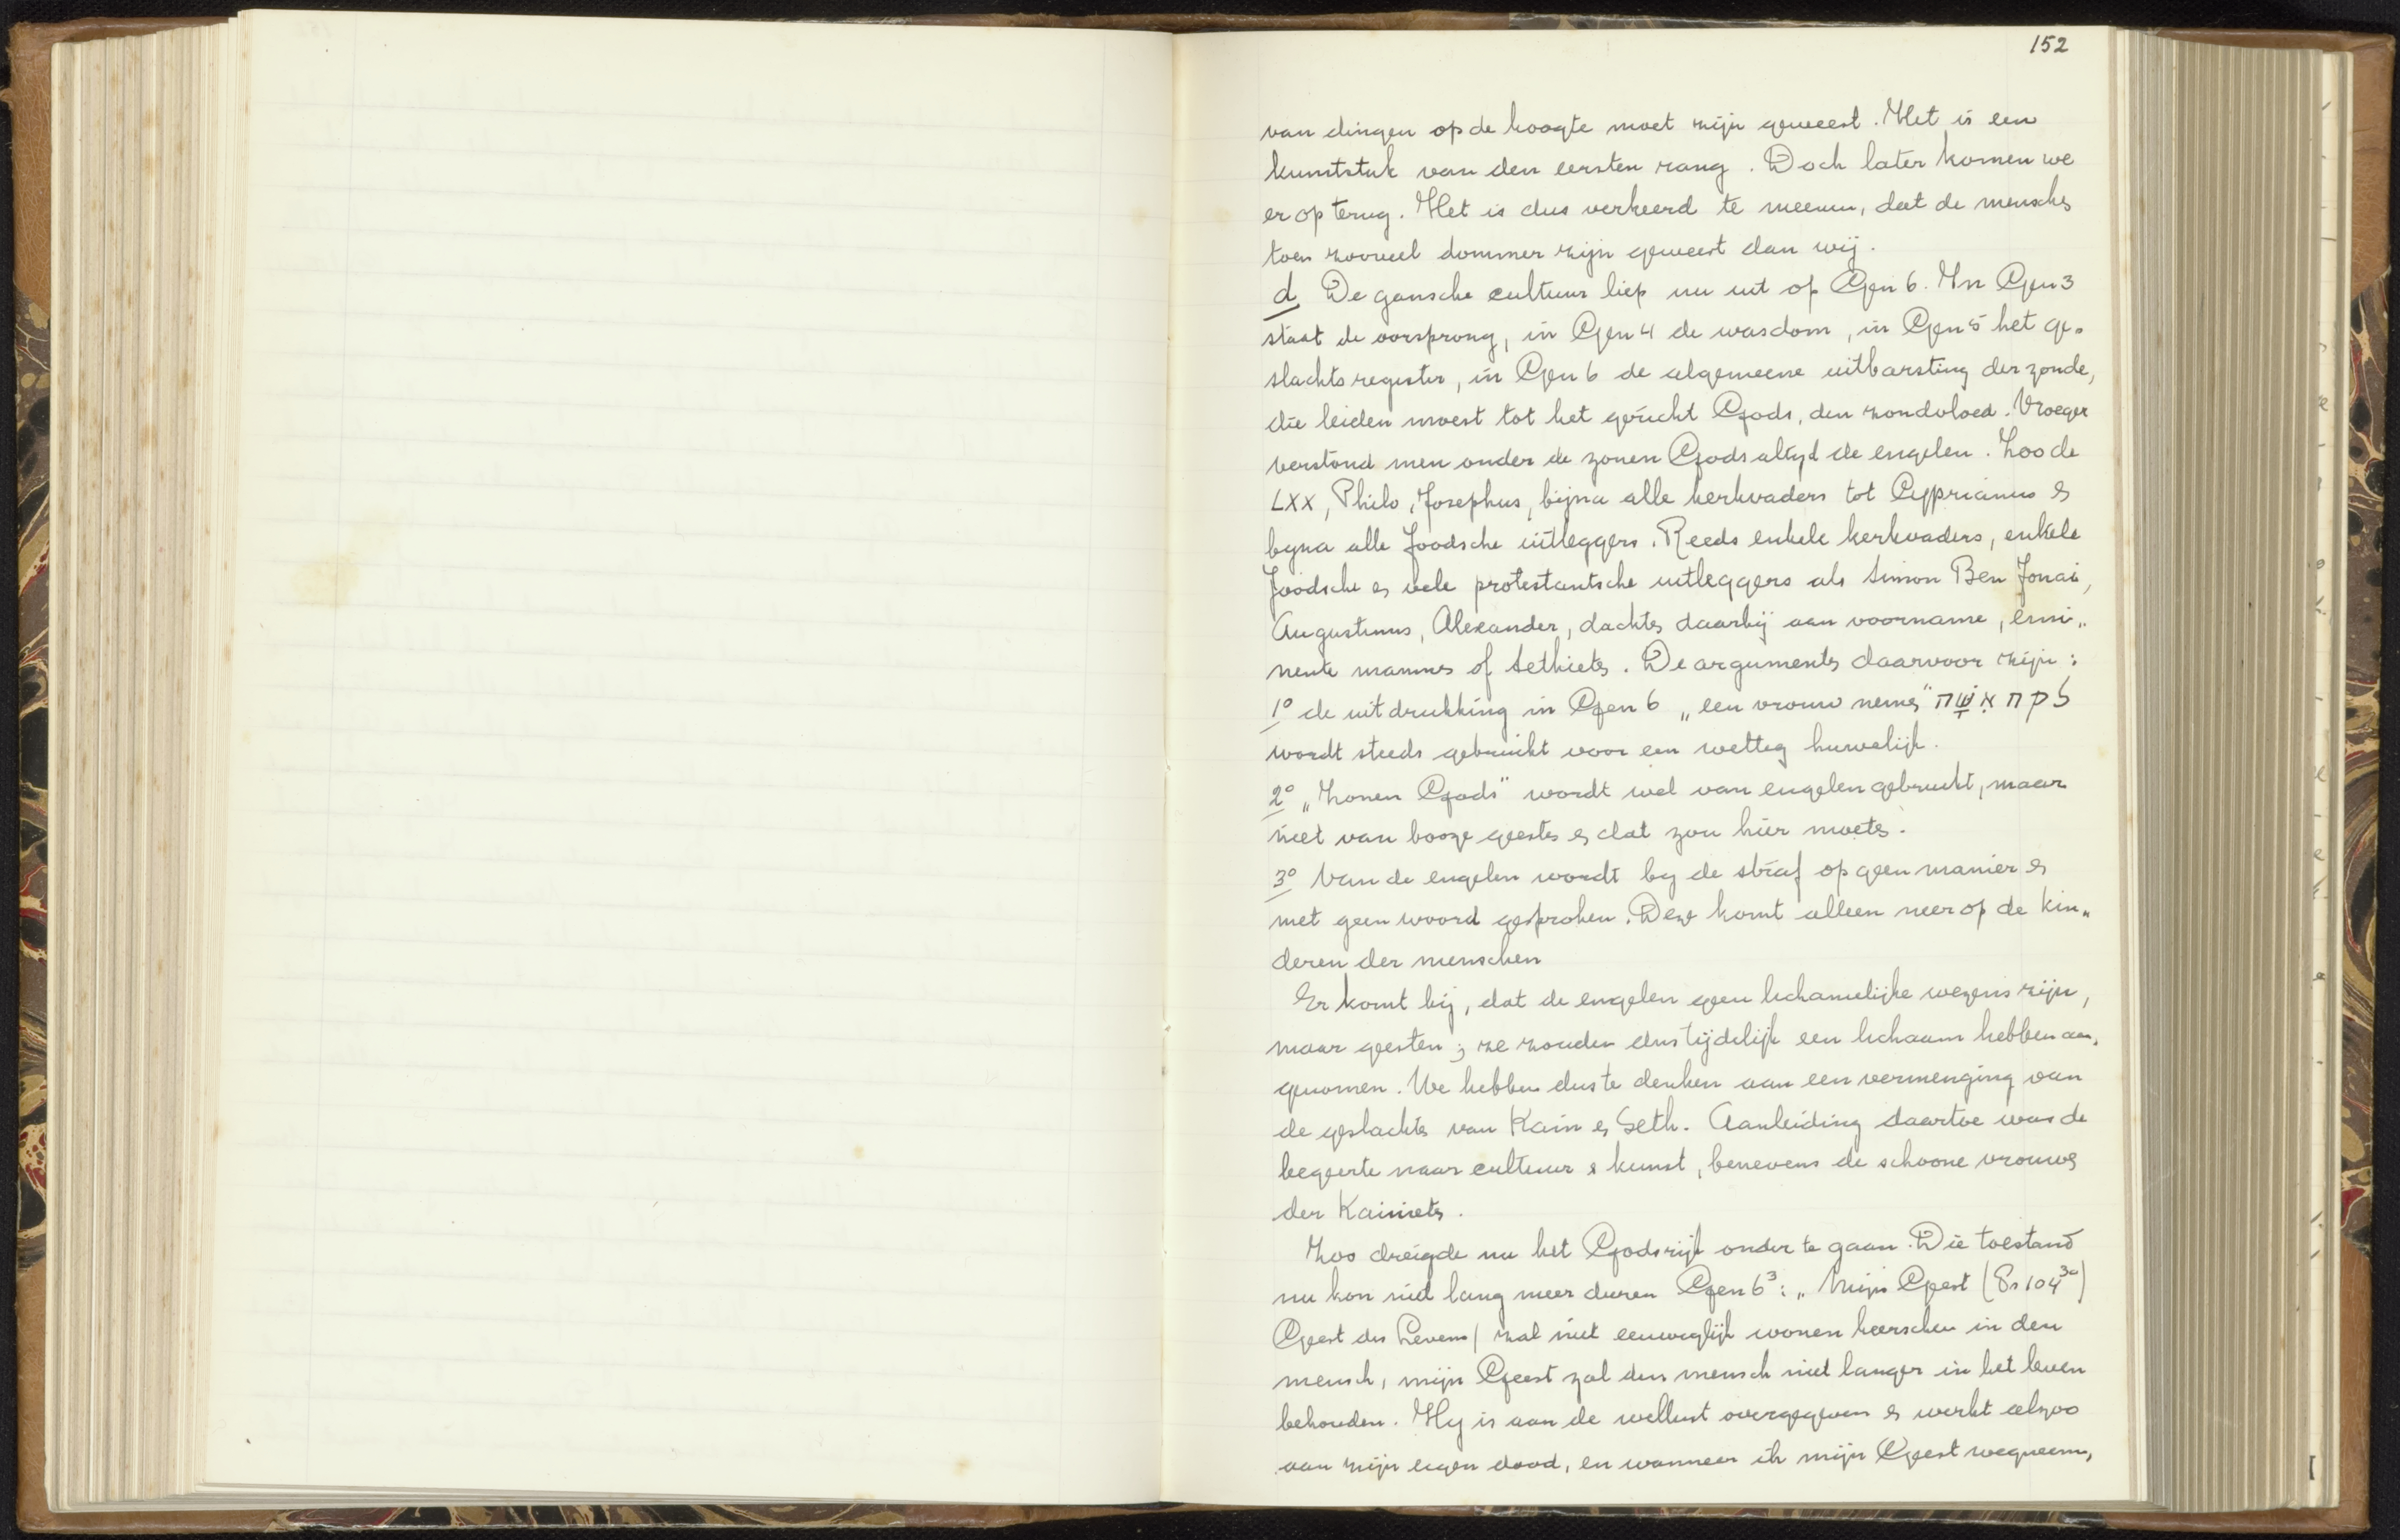 152
van dingen op de hoogte moet zijn geweest. Het is een
kunststuk van den eersten rang. Doch later komen we
er op terug. Het is dus verkeerd te meenen, dat de menschen
toen zooveel dommer zijn geweest dan wij.
d De gansche cultuur liep nu uit op Gen 6. In Gen 3
staat de oorsprong, in Gen 4 de wasdom, in Gen 5 het ge-
slachtsregister, in Gen 6 de algemeene uitbarsting der zonde,
die leiden moest tot het gericht Gods, den zondvloed. Vroeger
verstond men onder de zonen Gods altyd de engelen. Zoo de
LXX, Philo, Josephus, bijna alle kerkvaders tot Cyprianus en
byna alle Joodsche uitleggers. Reeds enkele kerkvaders, enkele
Joodsche en vele protestantsche uitleggers als Simon Ben Jonai,
Augustinus, Alexander, dachten daarbij aan voorname, emi„
nente mannen of Sethieten. De argumenten daarvoor zijn:
1° de uitdrukking in Gen 6 „een vrouw nemen" לקח אִשָּׁה
wordt steeds gebruikt voor een wettig huwelijk.
2° „Zonen Gods" wordt wel van engelen gebruikt, maar
niet van booze geesten en dat zou hier moeten.
3° Van de engelen wordt by de straf op geen manier en
met geen woord gesproken. Deze komt alleen neer op de kin„
deren der menschen
Er komt bij, dat de engelen geen lichamelijke wezens zijn,
maar geesten; ze zouden dus tijdelijk een lichaam hebben aan„
genomen. We hebben dus te denken aan een vermenging van
de geslachten van Kain en Seth. Aanleiding daartoe was de
begeerte naar cultuur en kunst, benevens de schoone vrouwen
der Kainieten.
Zoo dreigde nu het Godsrijk onder te gaan. Die toestand
nu kon niet lang meer duren Gen 6³: „Mijn Geest (Ps 104³⁰)
Geest des Levens/ zal niet eeuwiglijk wonen heerschen in den
mensch, mijn Geest zal den mensch niet langer in het leven
behouden. Hy is aan de wellust overgegeven en werkt alzoo
aan zijn eigen dood, en wanneer ik mijn Geest wegneem,